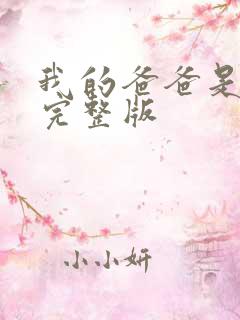 我的爸爸是
完整版
小小妍